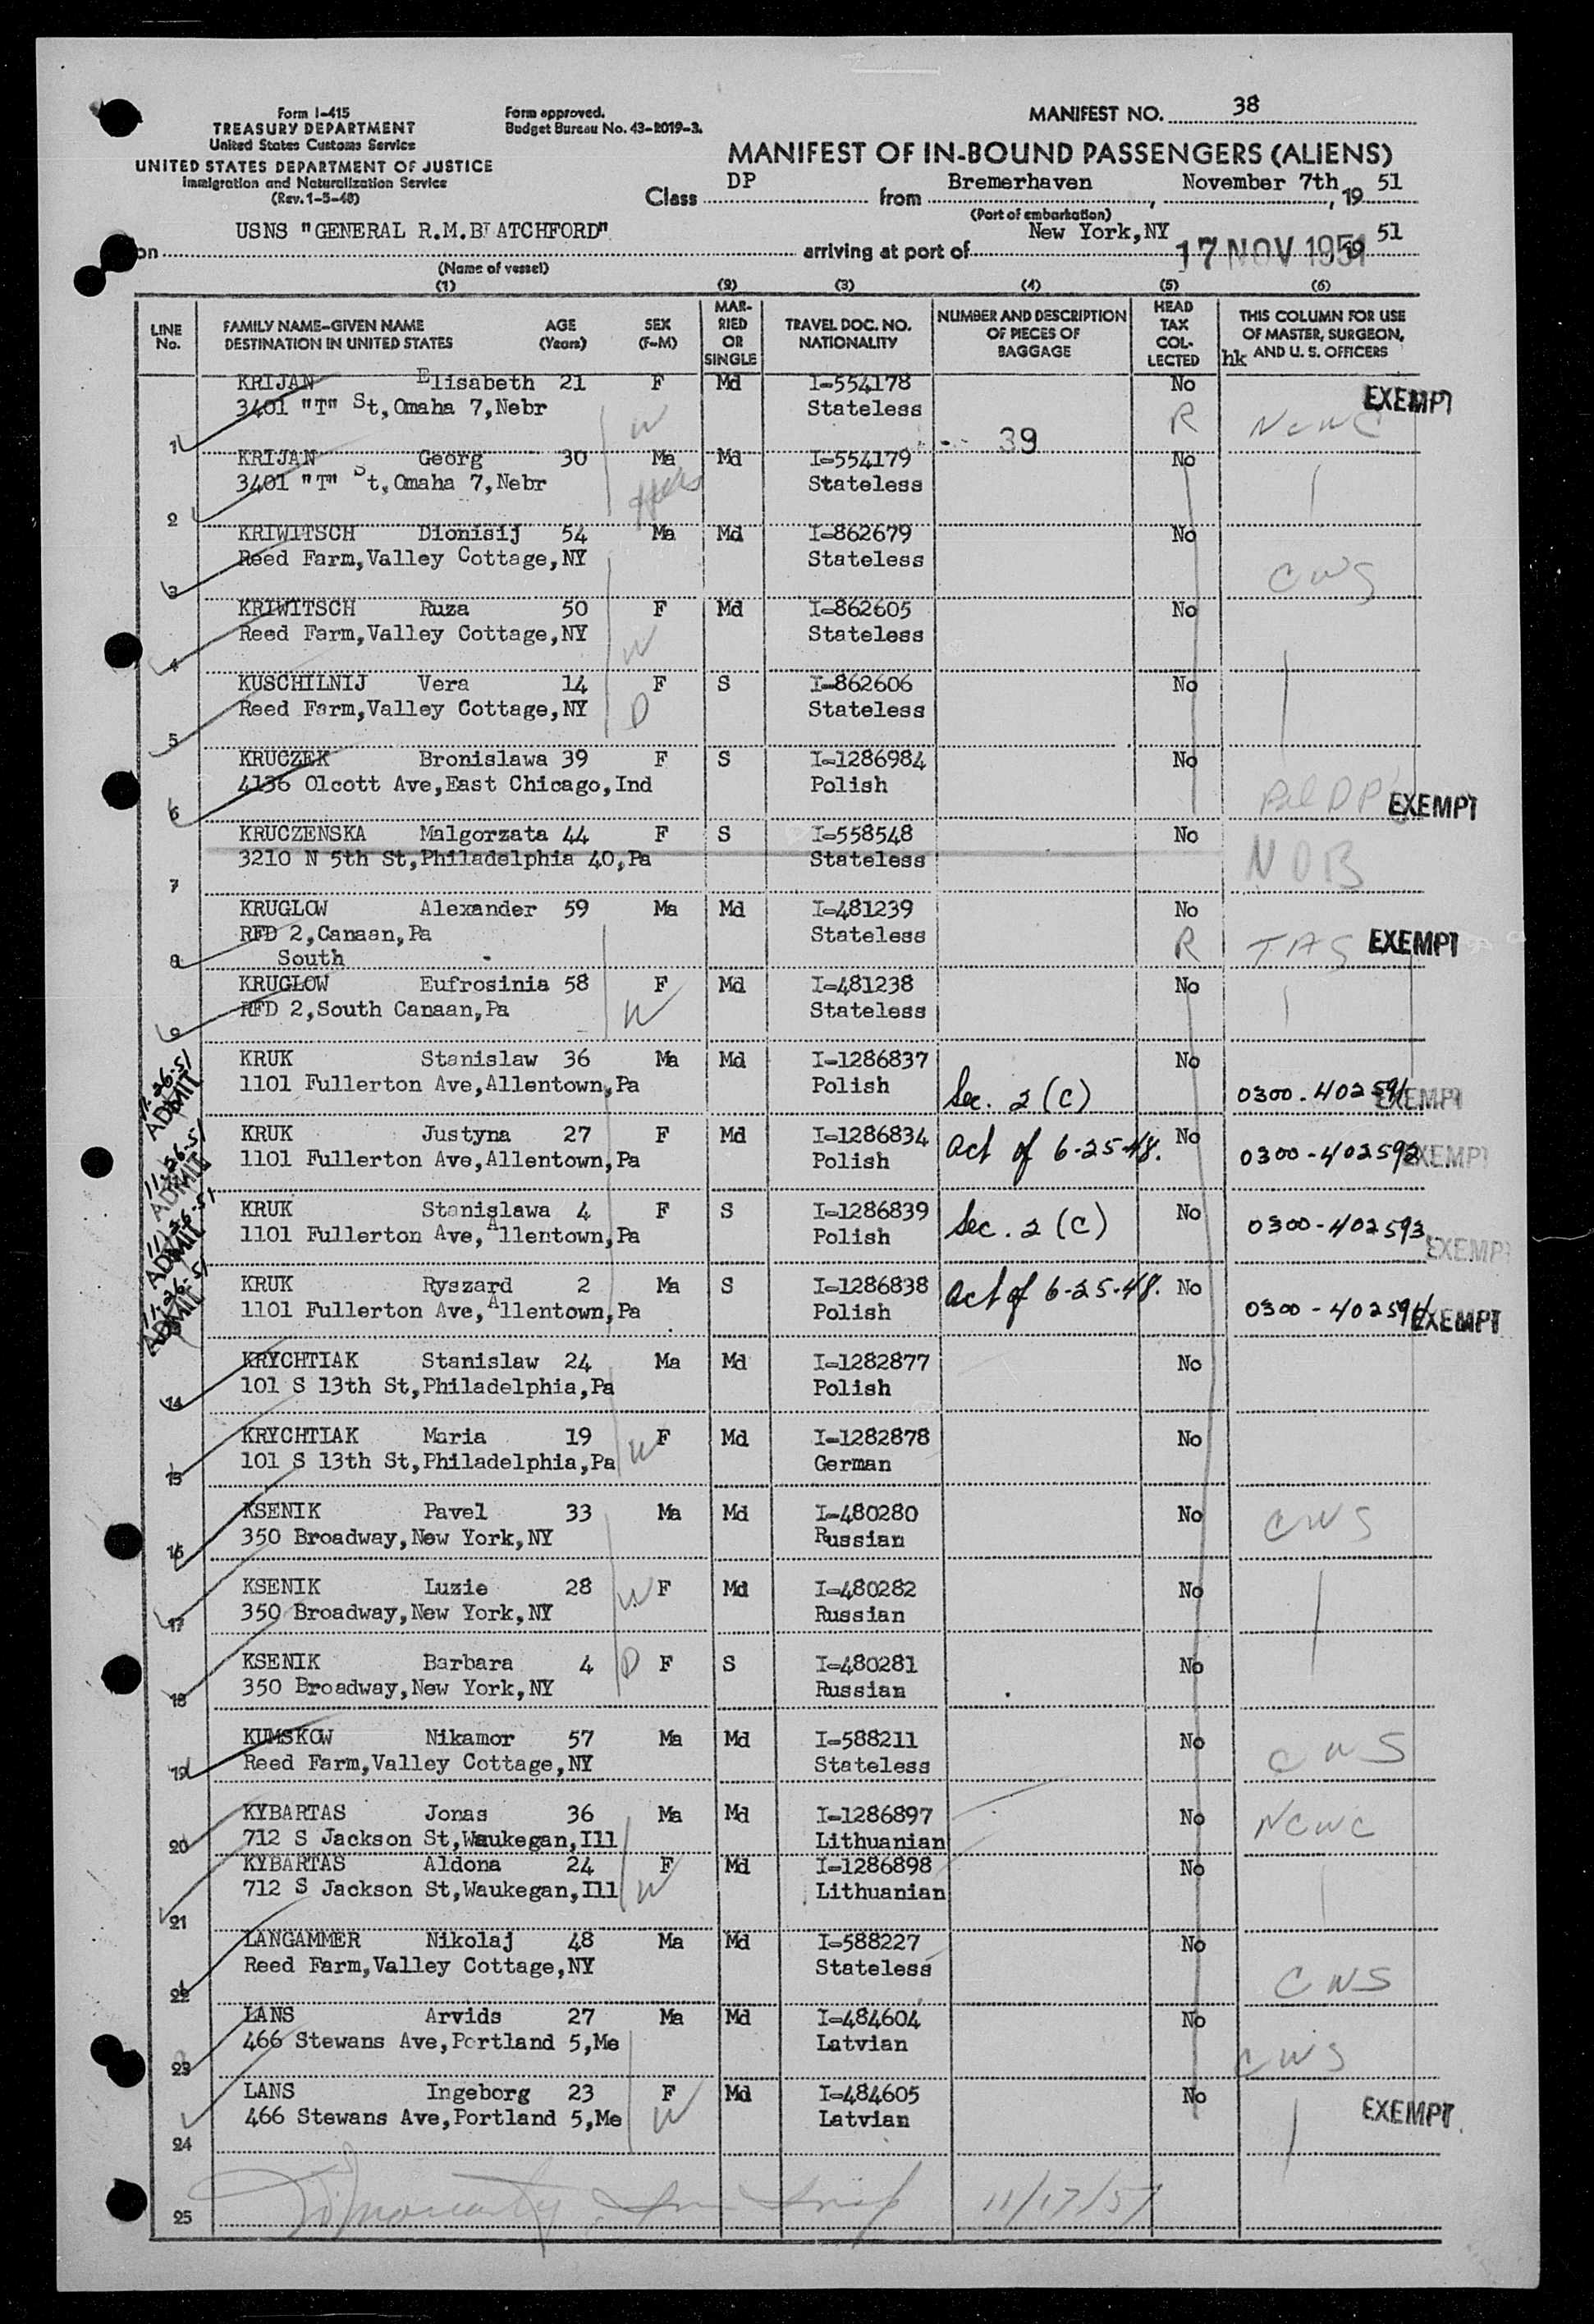 Form I-415
TREASURY DEPARTMENT
United States Customs Service
UNITED STATES DEPARTMENT OF JUSTICE
Immigration and Naturalization Service
(Rev. 1-5-48)
Form approved.
Budget Bureau No. 43-R019-3.
MANIFEST NO. 38
MANIFEST OF IN-BOUND PASSENGERS (ALIENS)
Class DP from Bremerhaven, November 7th, 19 51
(Port of embarkation)
on USNS "GENERAL R.M.BLATCHFORD" arriving at port of New York,NY 17 NOV 1951 19 51
(Name of vessel)
(1) (2) (3) (4) (5) (6)
LINE No. FAMILY NAME-GIVEN NAME DESTINATION IN UNITED STATES AGE (Years) SEX (F-M) MARRIED OR SINGLE TRAVEL DOC. NO. NATIONALITY NUMBER AND DESCRIPTION OF PIECES OF BAGGAGE HEAD TAX COLLECTED THIS COLUMN FOR USE OF MASTER, SURGEON, AND U. S. OFFICERS hk
KRIJAN Elisabeth 21 F Md I-554178 No EXEMPT
3401 "T" St,Omaha 7,Nebr W Stateless R NCWC
1 39
KRIJAN Georg 30 Ma Md I-554179 No
3401 "T" St,Omaha 7,Nebr Stateless
2
KRIWITSCH Dionisij 54 Ma Md I-862679 No
Reed Farm,Valley Cottage,NY Stateless CWS
3
KRIWITSCH Ruza 50 F Md I-862605 No
Reed Farm,Valley Cottage,NY W Stateless
4
KUSCHILNIJ Vera 14 F S I-862606 No
Reed Farm,Valley Cottage,NY D Stateless
5
KRUCZEK Bronislawa 39 F S I-1286984 No
4136 Olcott Ave,East Chicago,Ind Polish Pol DP EXEMPT
6
KRUCZENSKA Malgorzata 44 F S I-558548 No
3210 N 5th St,Philadelphia 40,Pa Stateless NOB
7
KRUGLOW Alexander 59 Ma Md I-481239 No
RFD 2,Canaan,Pa Stateless R TAS EXEMPT
8 South
KRUGLOW Eufrosinia 58 F Md I-481238 No
RFD 2,South Canaan,Pa W Stateless
9
KRUK Stanislaw 36 Ma Md I-1286837 No
1101 Fullerton Ave,Allentown,Pa Polish Sec. 2 (c) 0300-402591 EXEMPT
11-26-51 ADMIT
KRUK Justyna 27 F Md I-1286834 No
1101 Fullerton Ave,Allentown,Pa Polish Act of 6-25-48. 0300-402592 EXEMPT
11-26-51 ADMIT
KRUK Stanislawa 4 F S I-1286839 No
1101 Fullerton Ave,Allentown,Pa Polish Sec. 2 (c) 0300-402593 EXEMPT
11-26-51 ADMIT
KRUK Ryszard 2 Ma S I-1286838 No
1101 Fullerton Ave,Allentown,Pa Polish Act of 6-25-48. 0300-402594 EXEMPT
11-26-51 ADMIT
KRYCHTIAK Stanislaw 24 Ma Md I-1282877 No
101 S 13th St,Philadelphia,Pa Polish
14
KRYCHTIAK Maria 19 F Md I-1282878 No
101 S 13th St,Philadelphia,Pa W German
15
KSENIK Pavel 33 Ma Md I-480280 No
350 Broadway,New York,NY Russian CWS
16
KSENIK Luzie 28 W F Md I-480282 No
350 Broadway,New York,NY Russian
17
KSENIK Barbara 4 D F S I-480281 No
350 Broadway,New York,NY Russian
18
KUMSKOW Nikamor 57 Ma Md I-588211 No
Reed Farm,Valley Cottage,NY Stateless CWS
19
KYBARTAS Jonas 36 Ma Md I-1286897 No NCWC
20 712 S Jackson St,Waukegan,Ill Lithuanian
KYBARTAS Aldona 24 F Md I-1286898 No
712 S Jackson St,Waukegan,Ill W Lithuanian
21
LANGAMMER Nikolaj 48 Ma Md I-588227 No
Reed Farm,Valley Cottage,NY Stateless CWS
22
LANS Arvids 27 Ma Md I-484604 No
466 Stewans Ave,Portland 5,Me Latvian CWS
23
LANS Ingeborg 23 F Md I-484605 No
466 Stewans Ave,Portland 5,Me W Latvian EXEMPT
24
25 11/17/51